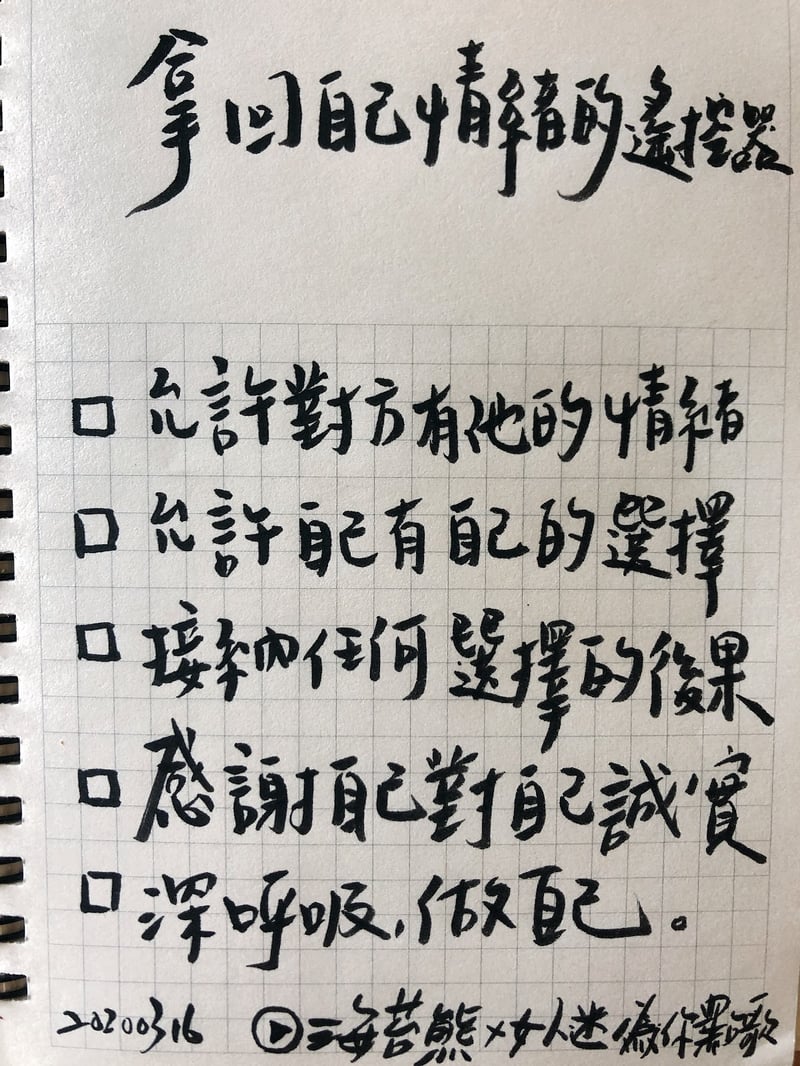 拿回自己情緒的遙控器
□ 允許對方有他的情緒
□ 允許自己有自己的選擇
□ 接納任何選擇的後果
□ 感謝自己對自己誠實
□ 深呼吸,做自己。
20200316 ▶海苔熊×女人迷 為你選歌